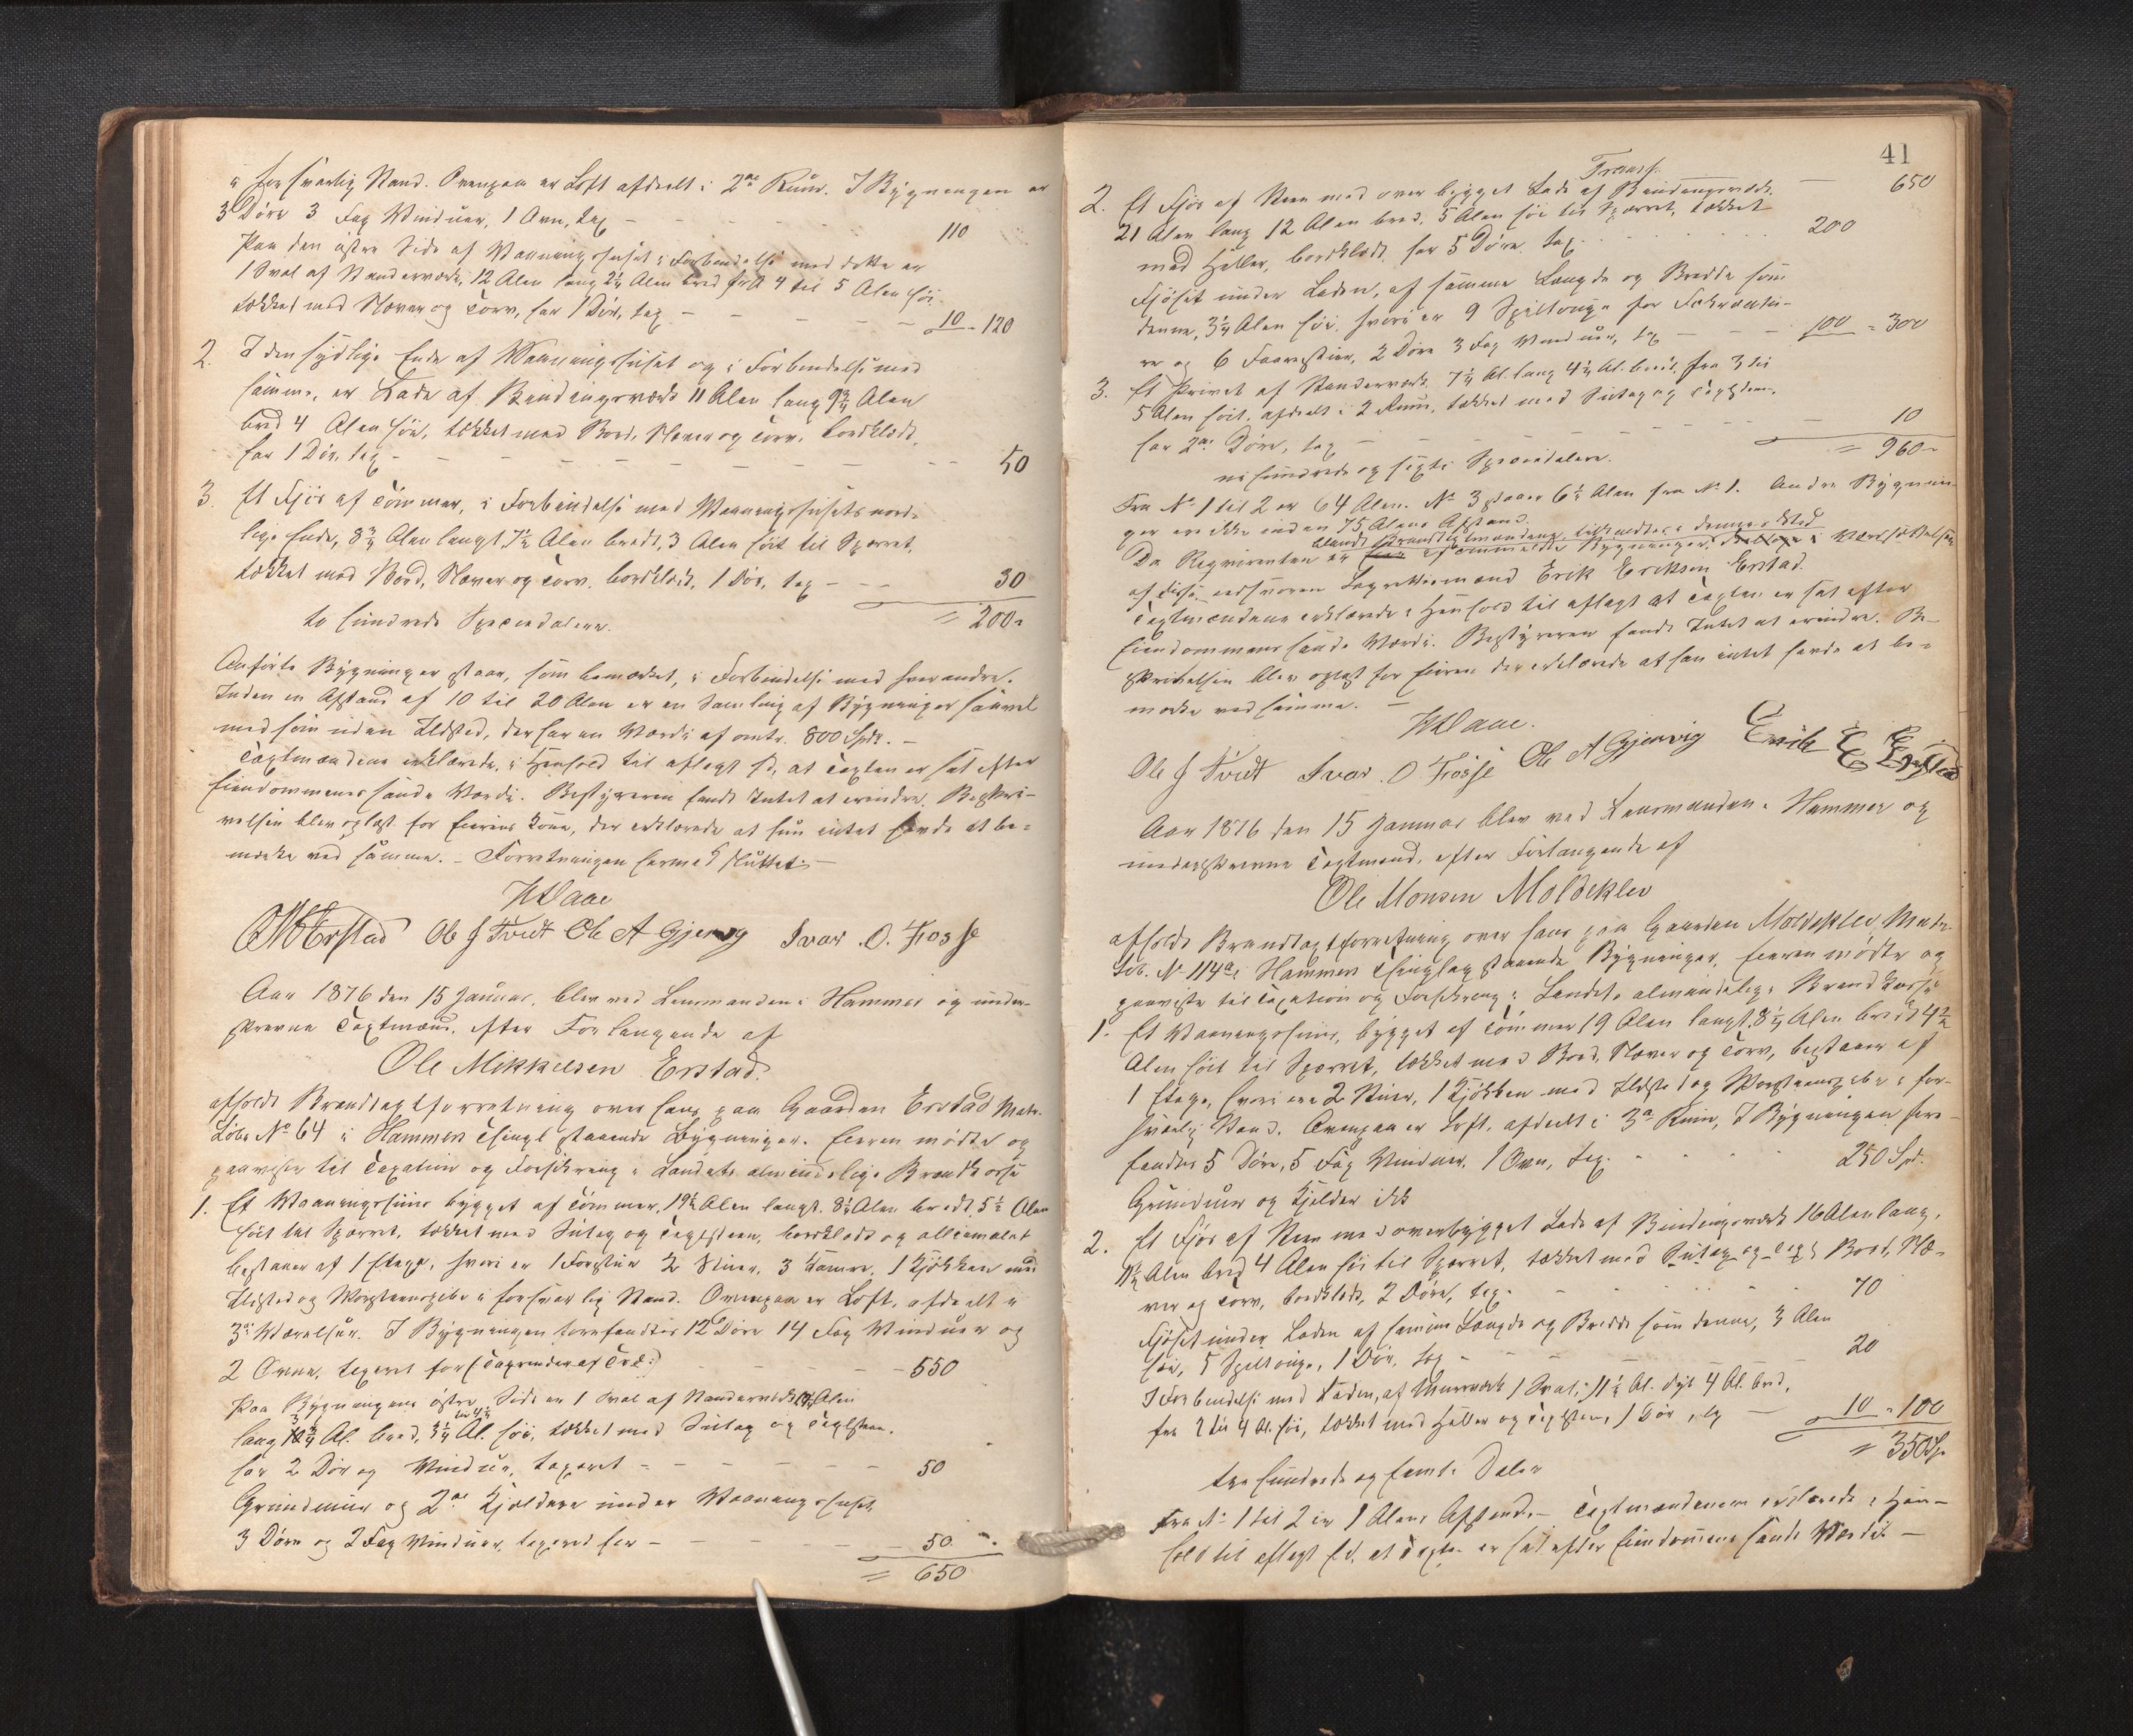 i forsvarlig Stand. Ovenpaa er Loft afdeelt i 2de Rum. I Bygningen er
3 Døre 3 Fag Vinduer, 1 Ovn, tax 110
Paa den østre Side af Vaaningshuset i Forbindelse med dette er
1 Sval af Standerværk, 12 Alen lang 2¼ Alen bred fra 4 til 5 Alen høi
tækket med Næver og Torv, har 1 Dør, tax 10 - 120
2. I den sydlige Ende af Vaaningshuset og i Forbindelse med
samme, er Lade af Bindingsværk 11 Alen lang 9¾ Alen
bred 4 Alen høi, tækket med Bord, Næver og Torv, bordklædt,
har 1 Dør, tax 50
3. Et Fjøs af Tømmer, i Forbindelse med Vaaningshusets nord-
lige Ende, 8¾ Alen langt, 7½ Alen bredt, 3 Alen høit til Sperret,
tækket med Bord, Næver og Torv, bordklædt, 1 Dør, tax 30
to hundrede Speciedalere. = 200
Anførte Bygninger staar, som bemærket, i Forbindelse med hverandre.
Inden en Afstand af 10 til 20 Alen er en Samling af Bygninger saavel
med som uden Ildsted, der har en Værdi af omtr. 800 Spdr. -
Taxtmændene erklærede, i Henhold til aflagt Ed, at Taxten er sat efter
Eiendommenes sande Værdi. Bestyreren fandt Intet at erindre. Beskri-
velsen blev oplæst for Eierens Kone, der erklærede at hun intet havde at be-
mærke ved samme. - Forretningen hermed sluttet. -
Ole J Tvedt Ole A Gjervig Ivar O. Fosse
Aar 1876 den 15 Januar, blev ved Lensmanden i Hammer og under-
skrevne Taxtmænd, efter Forlangende af
Ole Mikkelsen Erstad.
afholdt Brandtaxtforretning over hans paa Gaarden Erstad Matr.
Løbe No 64 i Hammer Thingl. staaende Bygninger. Eieren mødte og
paaviste til Taxation og Forsikring i Landets almindelige Brandkasse
1. Et Vaaningshuus bygget af Tømmer, 19½ Alen langt, 8½ Alen bredt, 5½ Alen
høit til Sperret, tækket med Sutag og Taglsteen, bordklædt og oliemalet
bestaaer af 1 Etage, hvori er 1 Forstue 2 Stuer, 3 Kamre, 1 Kjøkken med
Ildsted og Skorsteenspibe i forsvarlig Stand. Ovenpaa er Loft, afdeelt i
3de Værelser. I Bygningen forefandtes 12 Døre 14 Fag Vinduer og
2 Ovne, taxeret for (: Tagrender af Træ :) 550
Paa Bygningens østre Side er 1 Sval af Standerværk Alen
lang Al. bred, Al. høi, tækket med Sutag og Taglsteen,
har 2 Dør og Vindue, taxeret 50
Grundmur og 2de Kjældere under Vaaningshuset,
3 Døre og 2 Fag Vinduer, taxeret for 50
= 650
41
Transp. 650
2. Et Fjøs af Steen med over bygget Lade af Bindingsværk
21 Alen lang 12 Alen bred, 5 Alen høi til Sperret, tækket
med Heller, bordklædt, har 5 Døre, tax. 200
Fjøset under Laden, af samme Længde og Bredde som
denne, 3¼ Alen høi, hvori er 9 Spiltouge for Fækreatu-
rer og 6 Faarestier, 2 Døre 3 Fag Vinduer, tax 100 = 300
3. Et Privet af Standerværk, 7¼ Al. lang 4¼ Al. bred, fra 3 til
5 Alen høit, afdeelt i 2 Rum, tækket med Sutag og Taglsteen,
har 2de Døre, tax 10
= 960
ni hundrede og sexti Speciedalere.
Fra No 1 til 2 er 64 Alen. No 3 staar 6½ Alen fra No 1. Andre Bygnin-
ger ere ikke inden 75 Alens Afstand.
blandt Brandtaxtmændene, tilkaldtes i dennes Sted
Da Reqvirenten er
edsvoren Lagrettesmand Erik Eriksen Erstad.
Taxtmændene erklærede i Henhold til aflagt at Taxten er sat efter
Eiendommens sande Værdi. Bestyreren fandt Intet at erindre. Be-
skrivelsen blev oplæst for Eieren der erklærede at han intet havde at be-
mærke ved samme. -
Ole J Tvedt Ivar O Fosse Ole A Gjervig Erik E Erstad
Aar 1876 den 15 Januar blev ved Lensmanden i Hammer og
underskrevne Taxtmænd, efter Forlangende af
Ole Monsen Moldeklev
afholdt Brandtaxtforretning over hans paa Gaarden Moldeklev, Matr.
Løb. No 114a i Hammer Thinglag staaende Bygninger. Eieren mødte og
paaviste til Taxation og Forsikring i Landets almindelige Brandkasse
1. Et Vaaningshuus, bygget af Tømmer 19 Alen langt, 8¼ Alen bredt 4½
Alen høit til Sperret, tækket med Bord, Næver og Torv, bestaaer af
1 Etage, hvori ere 2 Stuer, 1 Kjøkken med Ildsted og Skorsteenspibe i for-
svarlig Stand. Ovenpaa er Loft, afdeelt i 3de Rum, I Bygningen fore-
fandtes 5 Døre, 5 Fag Vinduer, 1 Ovn, tax. 250 Spd.
Grundmur og Kjelder ikke
2. Et Fjøs af Steen med overbygget Lade af Bindingsværk 16 Alen lang,
Alen bred 4 Alen høi til Sperret, tækket med Sutag og Bord, Næ-
ver og Torv, bordklædt, 2 Døre, tax. 70
Fjøset under Laden af samme Længde og Bredde som denne, 3 Alen
høi, 5 Spiltouge, 1 Dør, tax 20
I Forbindelse med Laden, af Muurværk 1 Sval, Al. dyb 4 Al. bred,
fra 2 til 4 Al. høi, tækket med Heller og Taglsteen, 1 Dør, tax 10 = 100
= 350 Sp.
tre hundrede og femti Daler
Fra No 1 til 2 er 1 Alens Afstand. - Taxtmændene erklærede i Hen-
hold til aflagt Ed, at Taxten er sat efter Eiendommens sande Værdi -